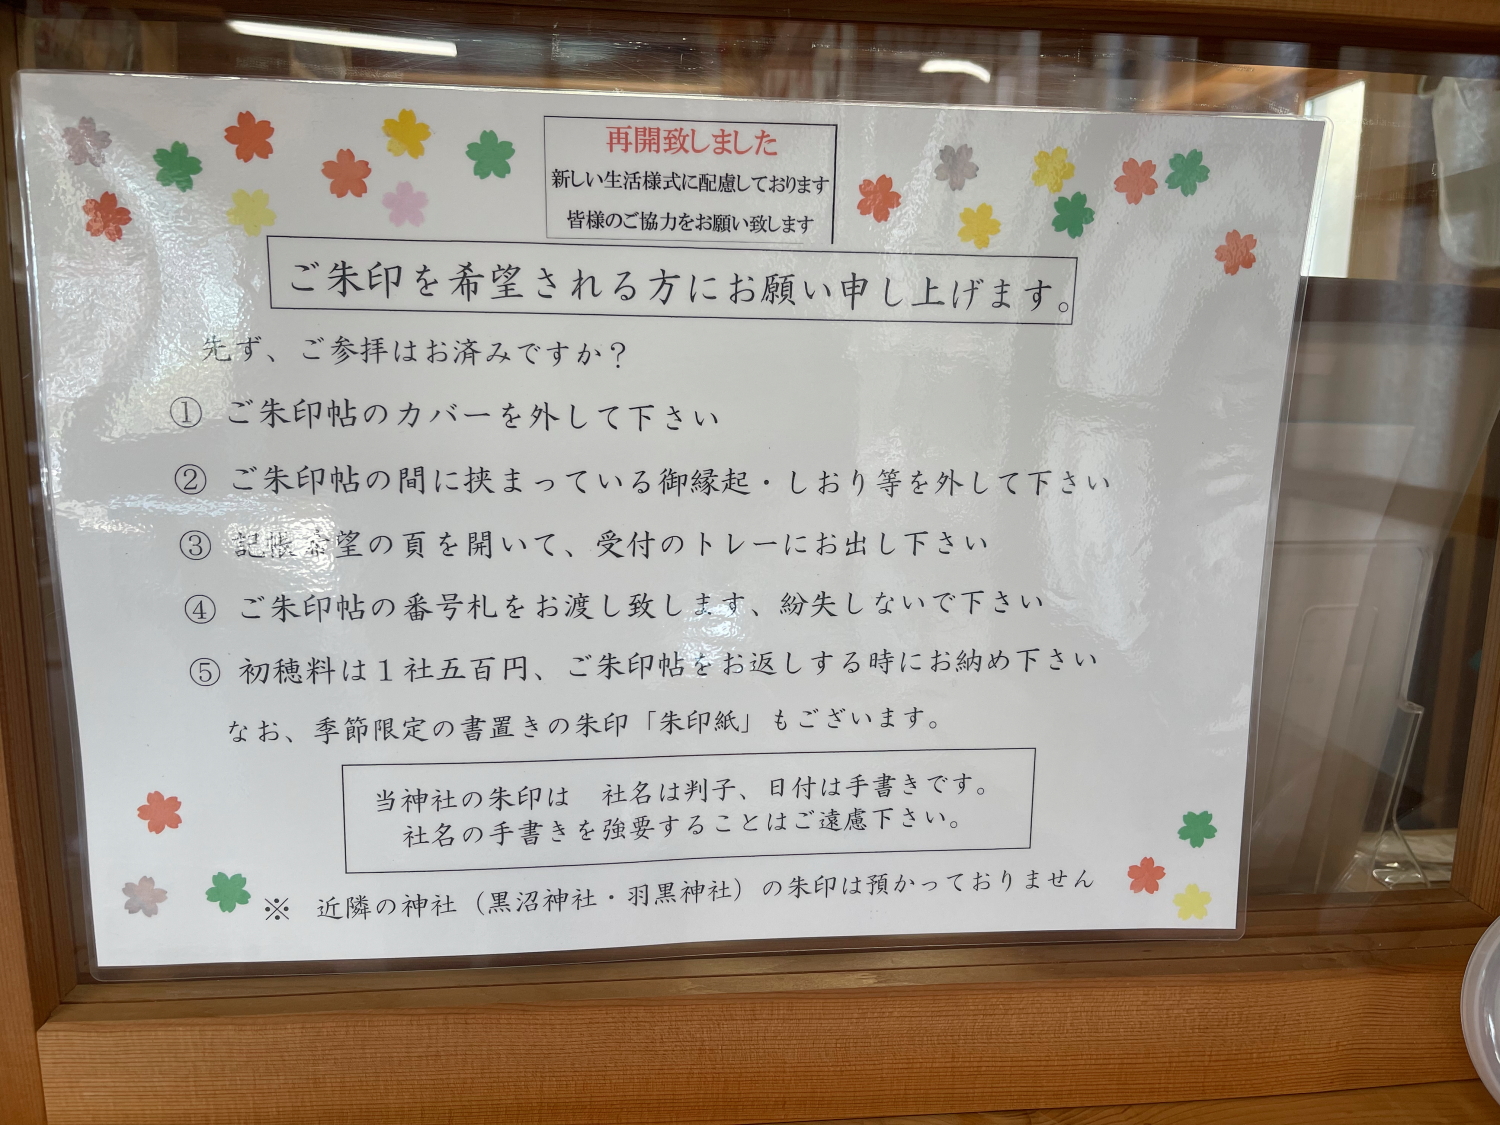 再開致しました
新しい生活様式に配慮しております
皆様のご協力をお願い致します
ご朱印を希望される方にお願い申し上げます。
先ず、ご参拝はお済みですか？
① ご朱印帖のカバーを外して下さい
② ご朱印帖の間に挟まっている御縁起・しおり等を外して下さい
③ 記帳希望の頁を開いて、受付のトレーにお出し下さい
④ ご朱印帖の番号札をお渡し致します、紛失しないで下さい
⑤ 初穂料は１社五百円、ご朱印帖をお返しする時にお納め下さい
なお、季節限定の書置きの朱印「朱印紙」もございます。
当神社の朱印は　社名は判子、日付は手書きです。
社名の手書きを強要することはご遠慮下さい。
※　近隣の神社（黒沼神社・羽黒神社）の朱印は預かっておりません